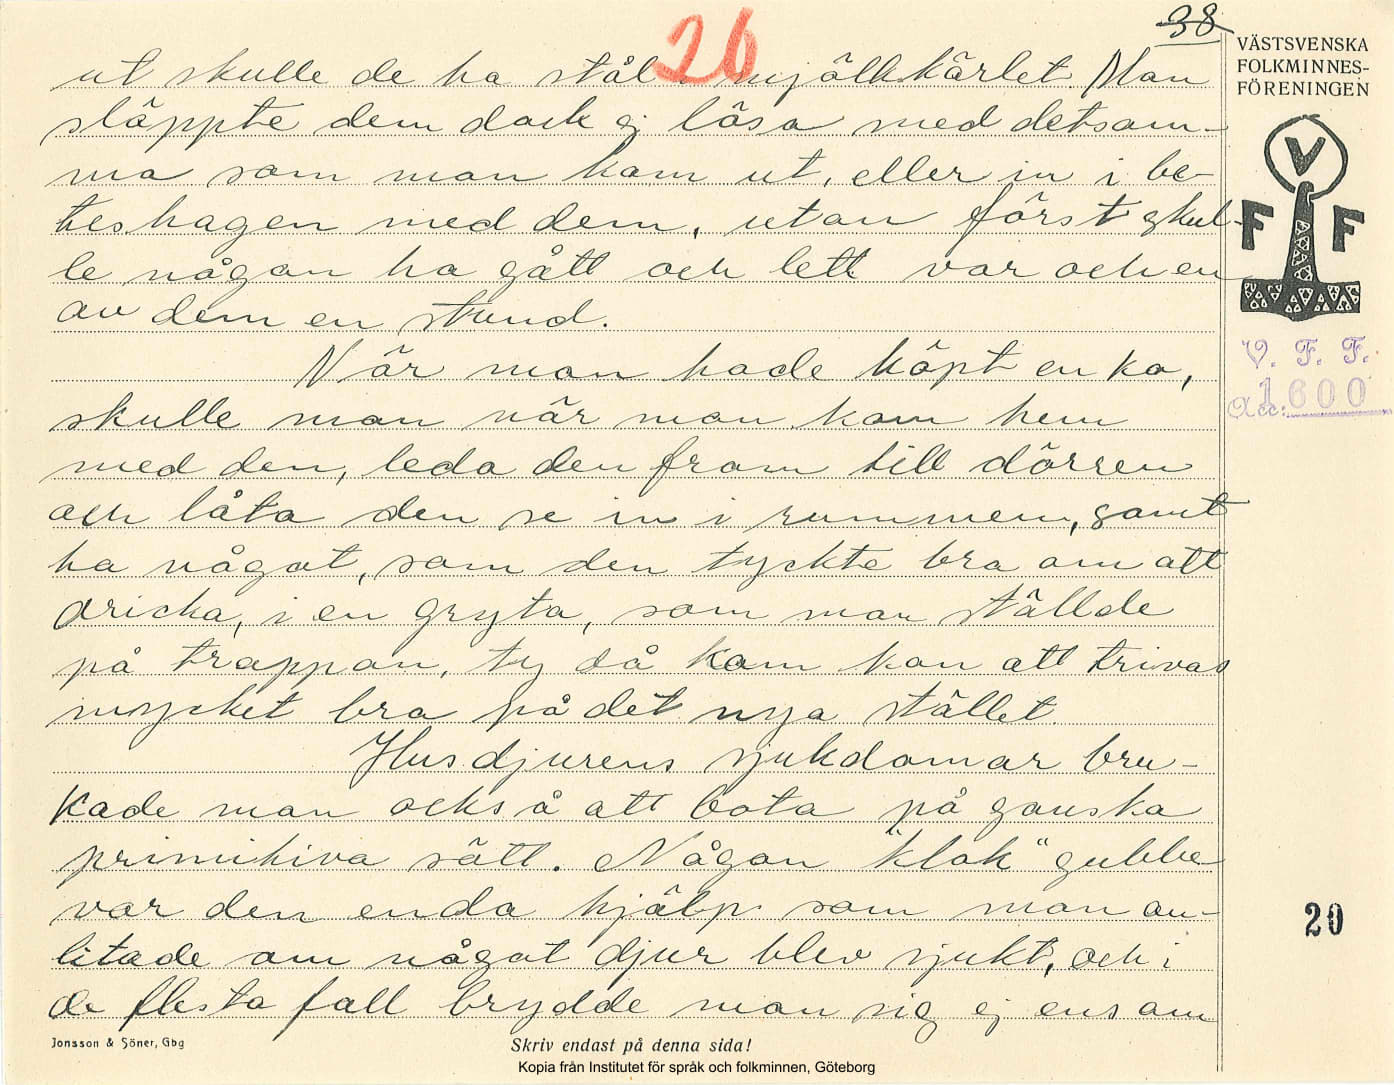 38
26
VÄSTSVENSKA
FOLKMINNES-
FÖRENINGEN
V
F F
V. F. F.
Acc: 1600
ut skulle de ha stål i mjölkkärlet. Man
släppte dem dock ej lösa med detsam-
ma som man kom ut, eller in i be-
teshagen med dem, utan först skul-
le någon ha gått och lett var och en
av dem en stund.
När man hade köpt en ko,
skulle man när man kom hem
med den, leda den fram till dörren
och låta den se in i rummem, samt
ha något, som den tyckte bra om att
dricka, i en gryta, som man ställde
på trappan, ty då kom kon att trivas
mycket bra på det nya stället
Husdjurens sjukdomar bru-
kade man också att bota på ganska
primitiva sätt. Någon "klok" gubbe
var den enda hjälp som man an-
litade om något djur blev sjukt, och i
de flesta fall brydde man sig ej ens om
20
Jonsson & Söner, Gbg
Skriv endast på denna sida!
Kopia från Institutet för språk och folkminnen, Göteborg